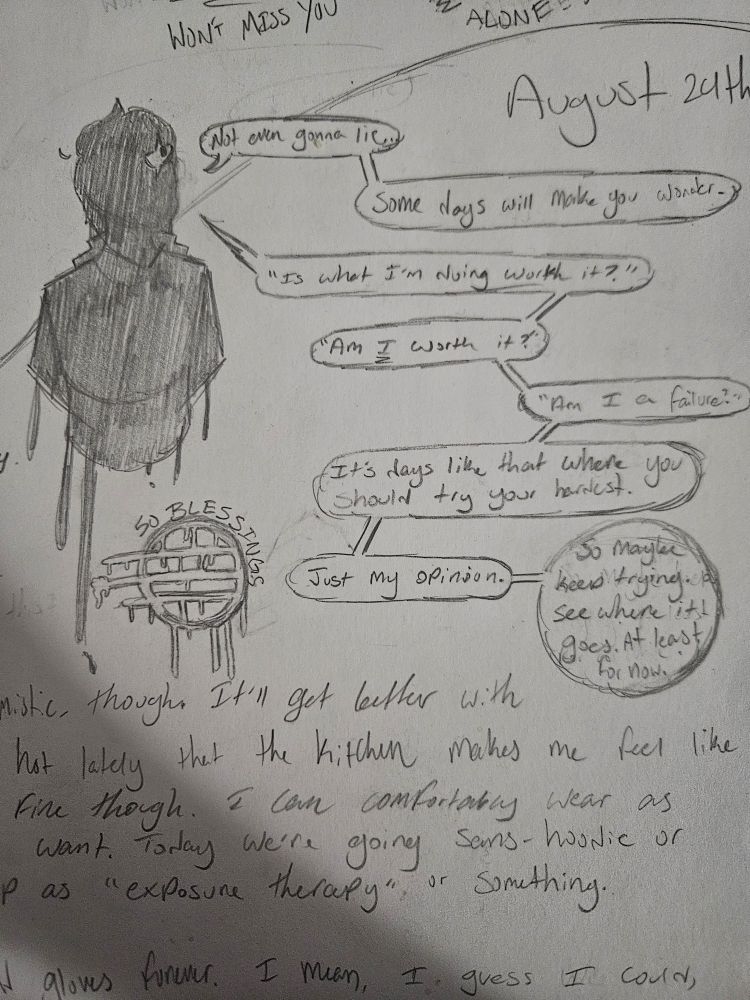 WON'T MISS YOU
ALONE
August 24th
Not even gonna lie...
Some days will make you wonder.
"Is what I'm doing worth it?"
"Am I worth it?"
"Am I a failure?"
It's days like that where you
should try your hardest.
Just my opinion.
So maybe
keep trying.
see where it
goes. At least
for now.
SO BLESSINGS
mistic, though. It'll get better with
hot lately that the kitchen makes me feel like
fine though. I can comfortably wear as
want. Today we're going sans-hoodie or
p as "exposure therapy" or something.
gloves forever. I mean, I guess I could,